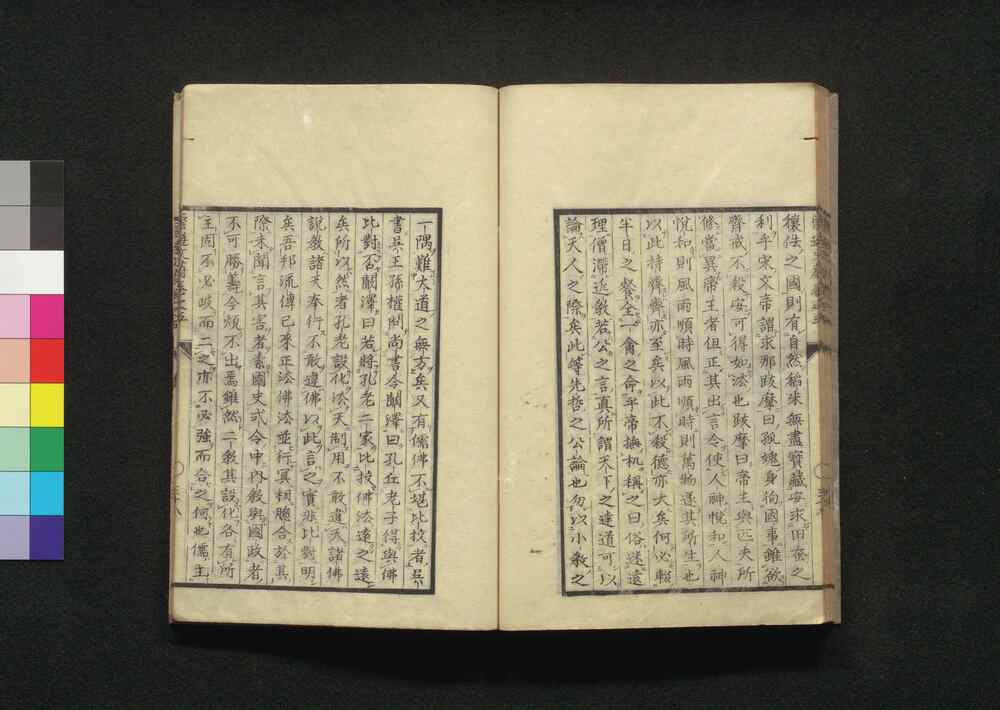 穰佉之國則有自然稻米無盡寶藏安求田蚕之
利乎宋文帝謂求那跋摩曰孤媿身徇國事雖欲
齋戒不殺安可得如法也跋摩曰帝王與匹夫所
修當異帝王者但正其出言令使人神悅和人神
悅和則風雨順時風雨順時則萬物遂其所生也
以此持齋齋亦至矣以此不殺德亦大矣何必輟
半日之飡全一禽之命乎帝撫机稱之曰俗迷遠
理僧滯近教若公之言真所謂天下之達道可以
論天人之際矣此等先哲之公論也勿以小教之
一隅難大道之無方矣又有儒佛不堪比挍者吳
書吳王孫權問尚書令闞澤曰孔丘老子得與佛
比對否闞澤曰若將孔老二家比挍佛法遠之遠
矣所以然者孔老設化法天制用不敢違天諸佛
說教諸天奉行不敢違佛以此言之實非比對明
矣吾邦流傳已來正法佛法並行冥相膽合於其
際未聞言其害者素國史式令中內教與國政者
不可勝筭今煩不出焉雖然二教其設化各有所
主固不必岐而二之亦不必強而合之何也儒主